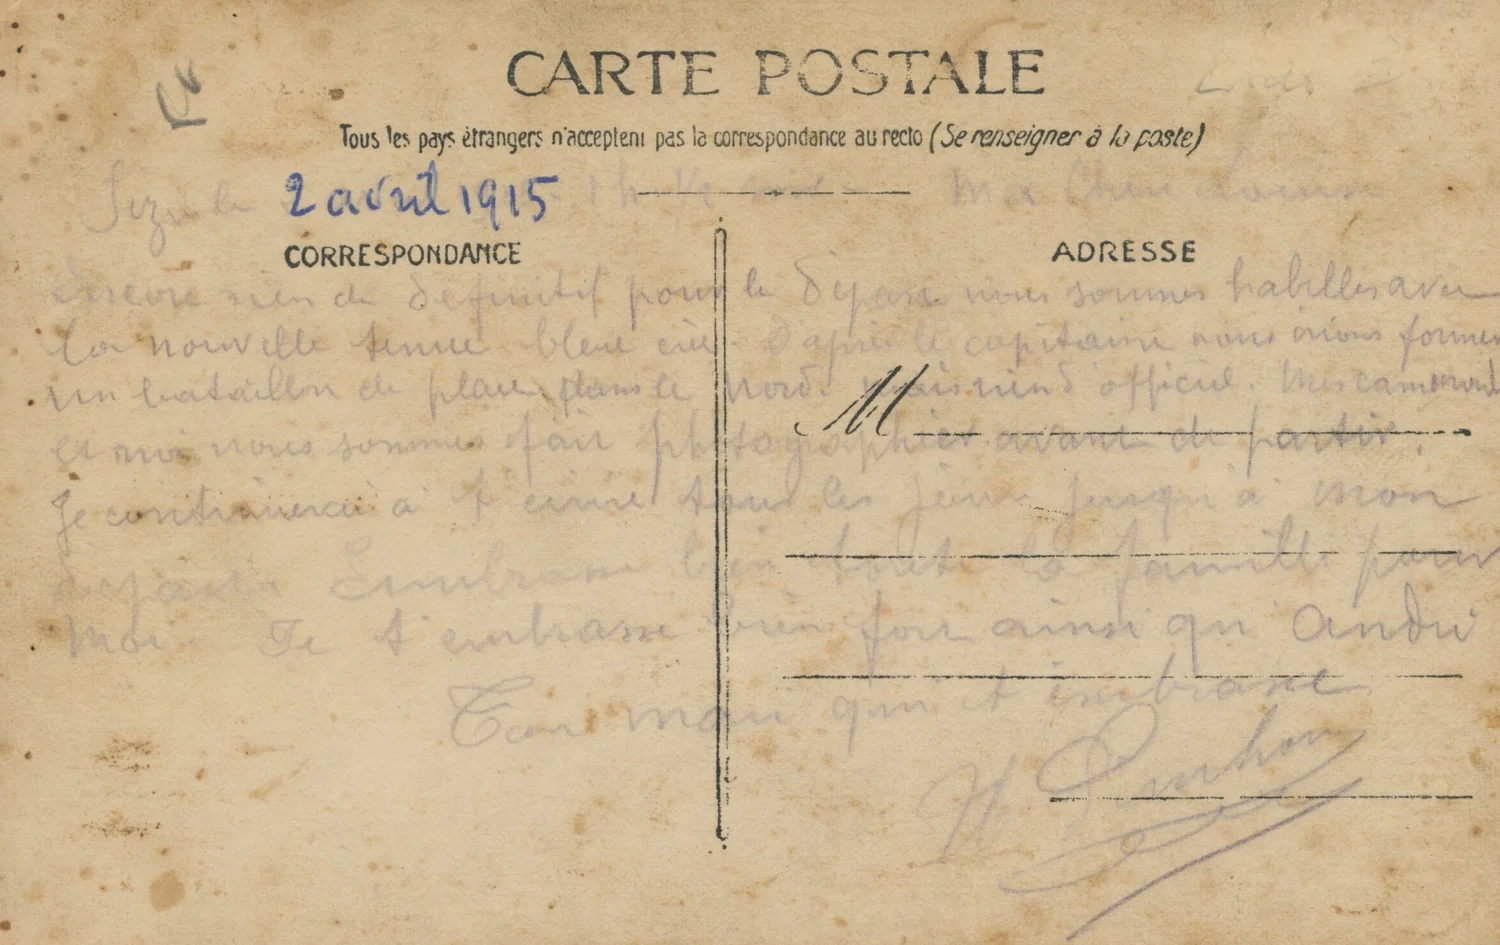 CARTE POSTALE
Tous les pays étrangers n'acceptent pas la correspondance au recto (Se renseigner à la poste)
le 2 avril 1915 1 h 1/2 Ma Chère Louise
CORRESPONDANCE
ADRESSE
Encore rien de définitif pour le départ nous sommes habillés avec
la nouvelle tenue bleu ciel. D'après le capitaine nous irions former
un bataillon de place dans le Nord. Mais rien d'officiel. Mes camarades
et moi nous sommes fait photographier avant de partir.
M
Je continuerai à t'écrire tous les jours jusqu'à mon
départ Embrasse bien toute la famille pour
Moi. Je t'embrasse bien fort ainsi qu'André
Ton mari qui t'embrasse